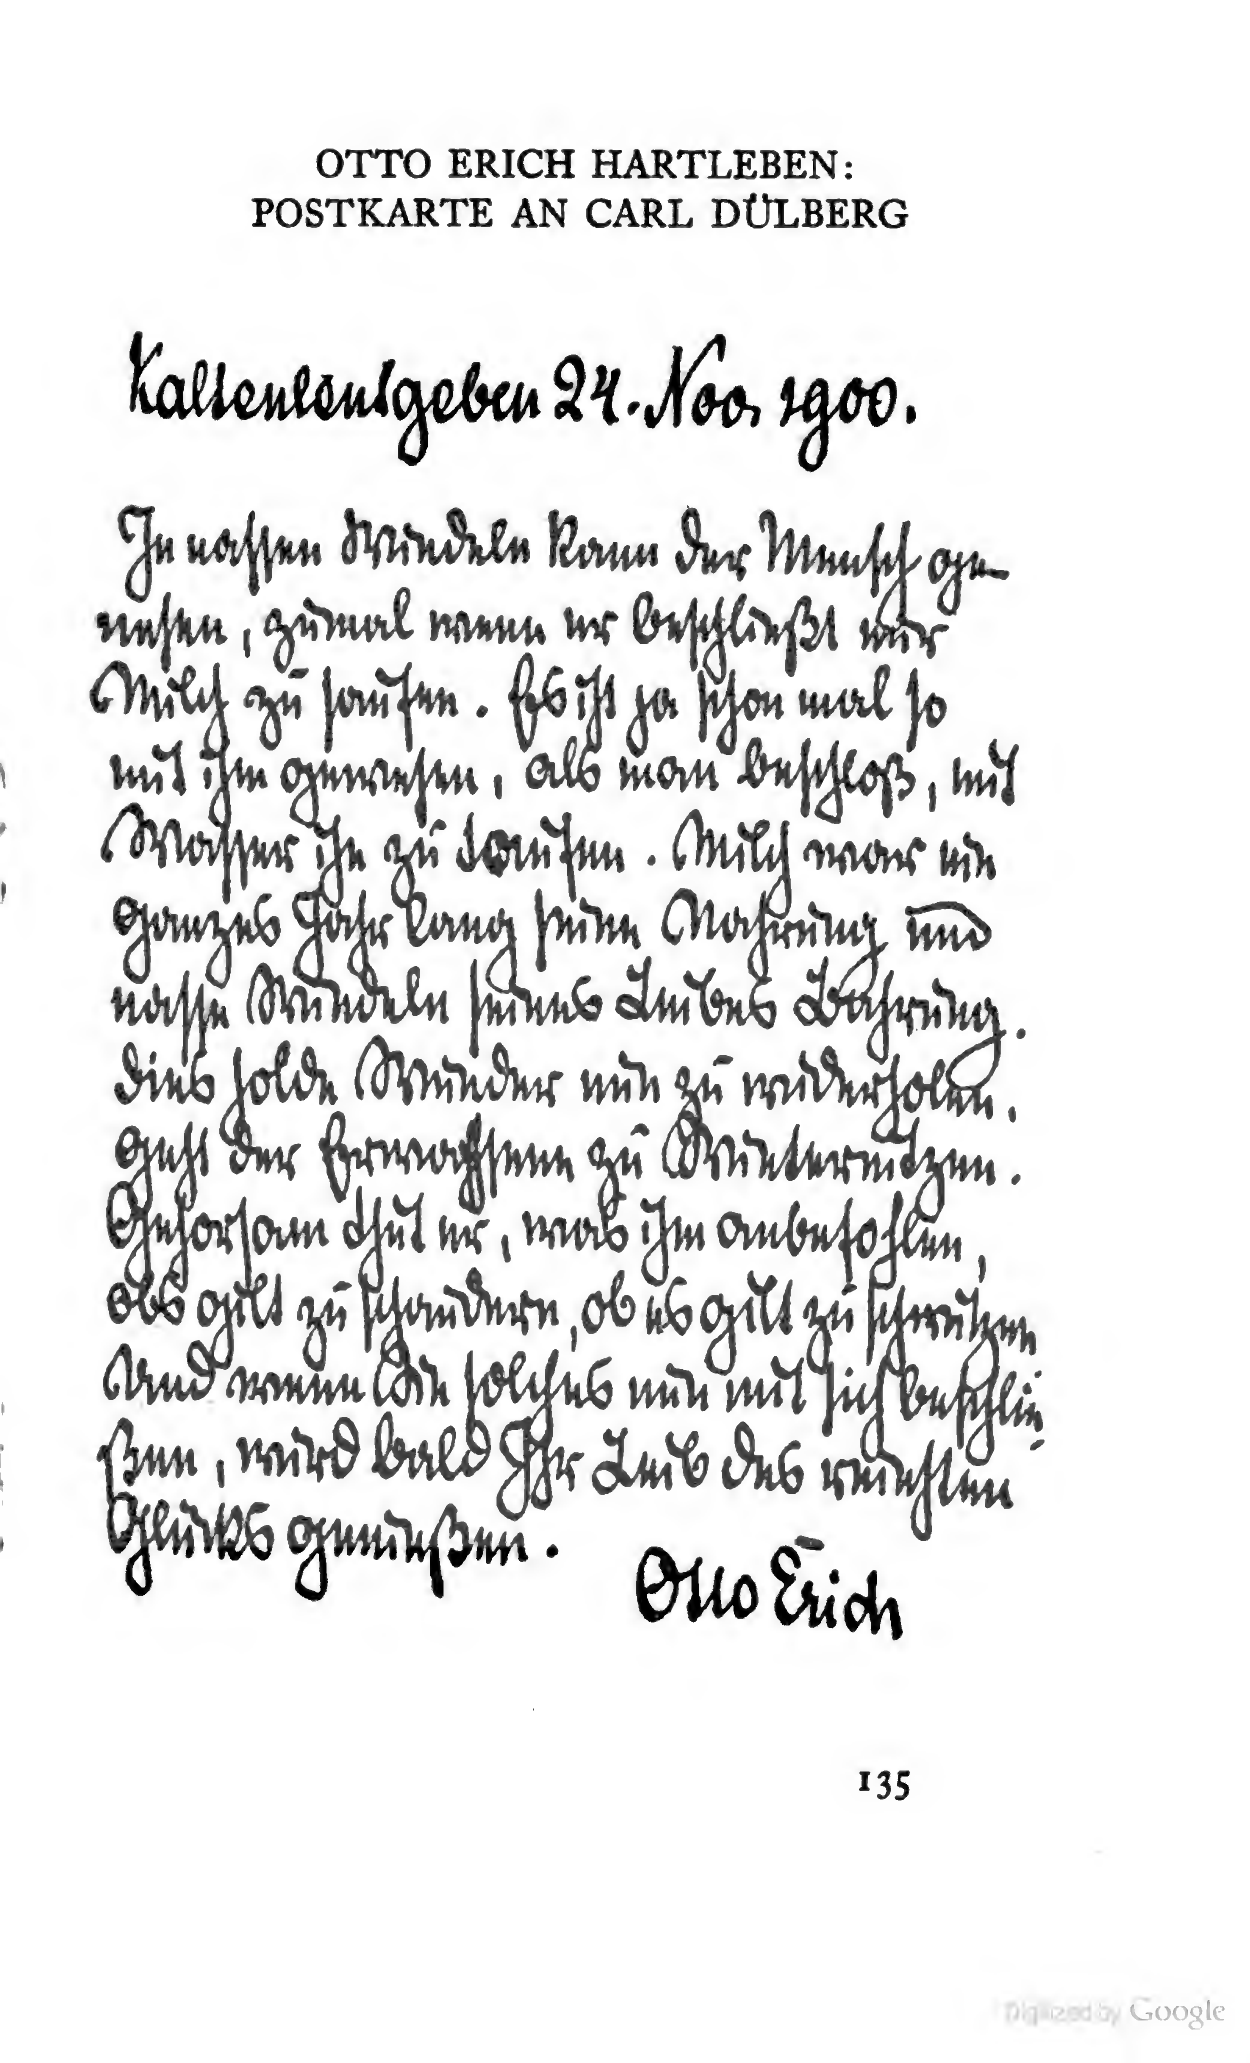 OTTO ERICH HARTLEBEN:
POSTKARTE AN CARL DÜLBERG
Kaltenleutgeben 24. Nov. 1900.
In nassen Windeln kann der Mensch ge-
nesen, zumal wenn er beschließt nur
Milch zu saufen. Es ist ja schon mal so
mit ihm gewesen, als man beschloß, mit
Wasser ihn zu taufen. Milch war ein
ganzes Jahr lang seine Nahrung und
nasse Windeln seines Leibes Bahrung.
Dies holde Wunder nun zu widerholen,
geht der Erwachsene zu Winternitzen.
Gehorsam thut er, was ihm anbefohlen,
obs gilt zu schaudern, ob es gilt zu schwitzen
Und wenn Sie solches nun mit sich beschlie-
ßen, wird bald Ihr Leib des reinsten
Glücks genießen.
Otto Erich
135
Digitized by Google